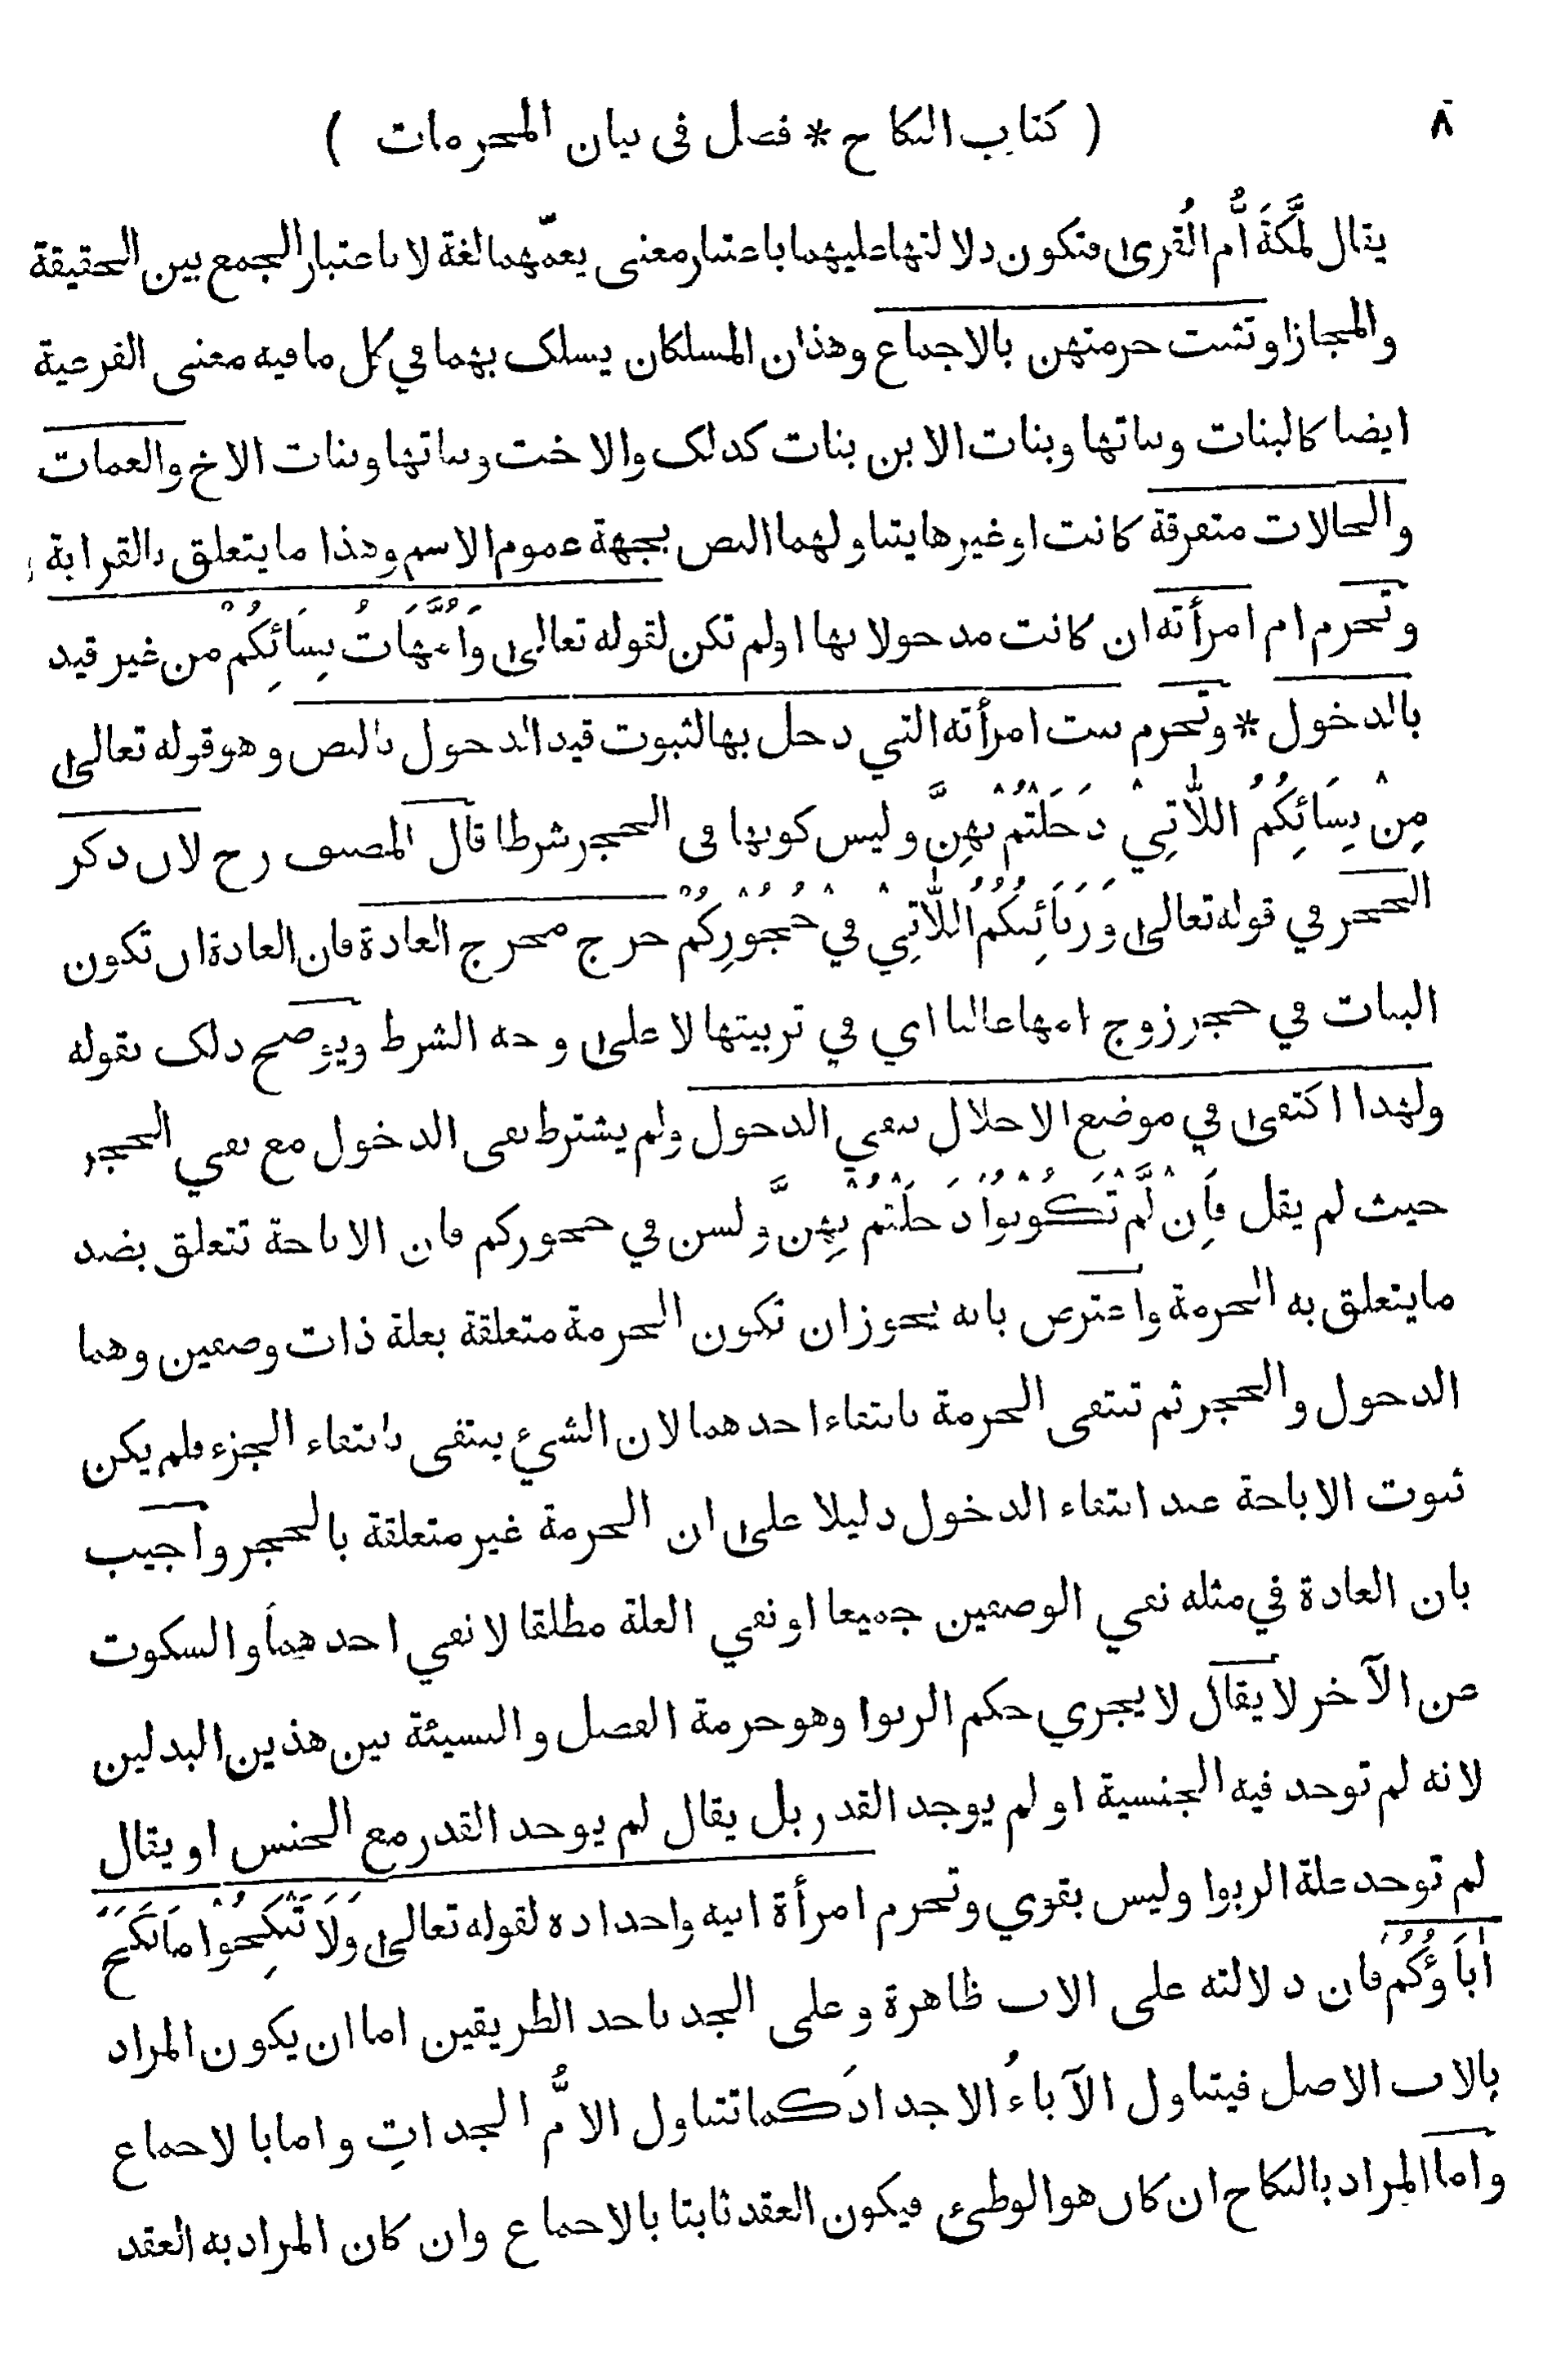 ٨ ( كتاب النكاح * فصل فى بيان المحرمات )
يقال لمَكَّةَ اُمُّ القُرى فتكون دلالتها عليهما باعتبار معنى يعمّهما لغة لا باعتبار الجمع بين الحقيقة
والمجاز او تثبت حرمتهن بالاجماع وهذان المسلكان يسلك بهما في كل ما فيه معنى الفرعية
ايضا كالبنات وبناتها وبنات الابن بنات كذلك والاخت وبناتها وبنات الاخ والعمات
والخالات متفرقة كانت او غيرها يتناولهما النص بجهة عموم الاسم وهذا ما يتعلق بالقرابة
وتحرم ام امرأته ان كانت مدخولا بها اولم تكن لقوله تعالى وَاُمَّهَاتُ نِسَائِكُمْ من غير قيد
بالدخول * وتحرم بنت امرأته التي دخل بها لثبوت قيد الدخول بالنص وهو قوله تعالى
مِنْ نِسَائِكُمُ اللّٰاتِيْ دَخَلْتُمْ بِهِنَّ وليس كونها فى الحجر شرطا قال المصنف رح لان ذكر
الحجر في قوله تعالى وَرَبَائِبُكُمُ اللّٰاتِيْ فِيْ حُجُوْرِكُمْ خرج مخرج العادة فان العادة ان تكون
البنات في حجر زوج امها غالبا اي في تربيتها لا على وجه الشرط ويوضح ذلك بقوله
ولهذا اكتفى في موضع الاحلال بنفي الدخول ولم يشترط نفى الدخول مع نفي الحجر
حيث لم يقل فَاِنْ لَّمْ تَكُوْنُوْا دَخَلْتُمْ بِهِنَّ ولسن في حجوركم فان الاباحة تتعلق بضد
ما يتعلق به الحرمة واعترض بانه يجوز ان تكون الحرمة متعلقة بعلة ذات وصفين وهما
الدخول والحجر ثم تنتفى الحرمة بانتفاء احدهما لان الشيئ ينتفى بانتفاء الجزء فلم يكن
ثبوت الاباحة عند انتفاء الدخول دليلا على ان الحرمة غير متعلقة بالحجر واجيب
بان العادة في مثله نفي الوصفين جميعا او نفي العلة مطلقا لا نفي احدهما والسكوت
عن الآخر لا يقال لا يجري حكم الربوا وهو حرمة الفضل والنسيئة بين هذين البدلين
لانه لم توجد فيه الجنسية او لم يوجد القدر بل يقال لم يوجد القدر مع الجنس او يقال
لم توجد علة الربوا وليس بقوي وتحرم امرأة ابيه واجداده لقوله تعالى وَلَا تَنْكِحُوْا مَا نَكَحَ
اٰبَاؤُكُمْ فان دلالته على الاب ظاهرة وعلى الجد باحد الطريقين اما ان يكون المراد
بالاب الاصل فيتناول الآباءُ الاجدادَ كما تتناول الامُّ الجداتِ واما بالاجماع
واما المراد بالنكاح ان كان هو الوطئ فيكون العقد ثابتا بالاجماع وان كان المراد به العقد